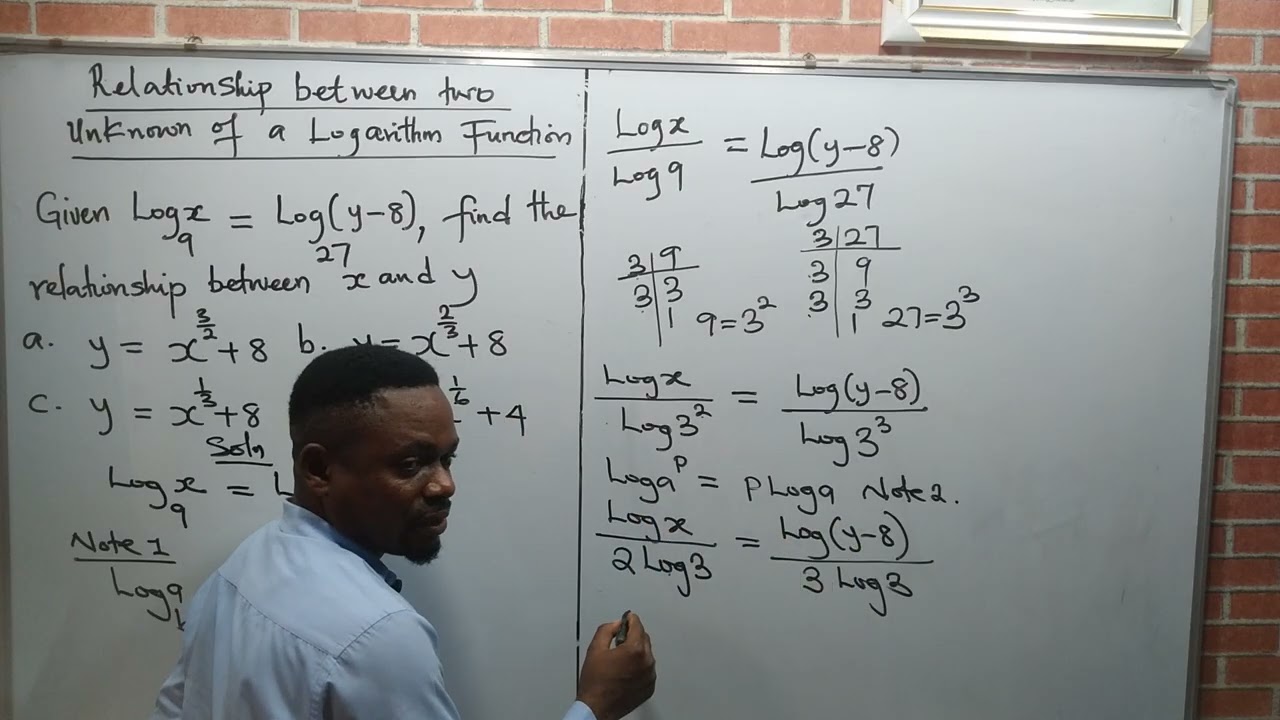 Relationship between two
Unknown of a Logarithm Function
Given Log₉x = Log₂₇(y-8), find the
relationship between x and y
a. y = x^(3/2) + 8 b. y = x^(2/3) + 8
c. y = x^(1/3) + 8 ^(1/6) + 4
Soln
Log₉x = L
Note 1
Log a
Log x / Log 9 = Log(y-8) / Log 27
3 | 9
3 | 3
| 1 9 = 3²
3 | 27
3 | 9
3 | 3
| 1 27 = 3³
Log x / Log 3² = Log(y-8) / Log 3³
Log a^P = P Log a Note 2.
Log x / 2 Log 3 = Log(y-8) / 3 Log 3